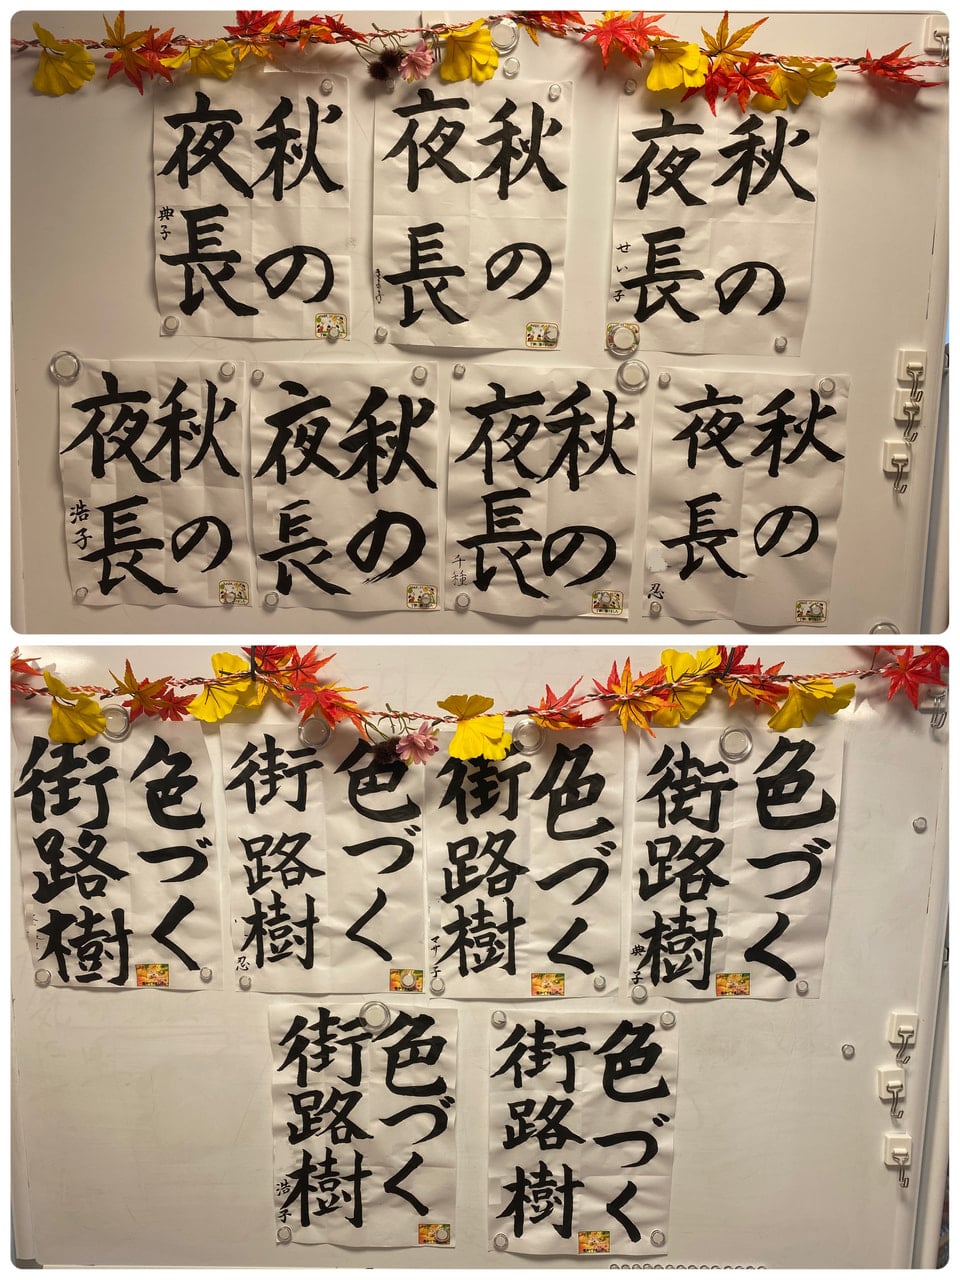 秋の
夜長
典子
秋の
夜長
秋の
夜長
せい子
秋の
夜長
浩子
秋の
夜長
秋の
夜長
千種
秋の
夜長
忍
色づく
街路樹
色づく
街路樹
忍
色づく
街路樹
マサ子
色づく
街路樹
典子
色づく
街路樹
浩子
色づく
街路樹